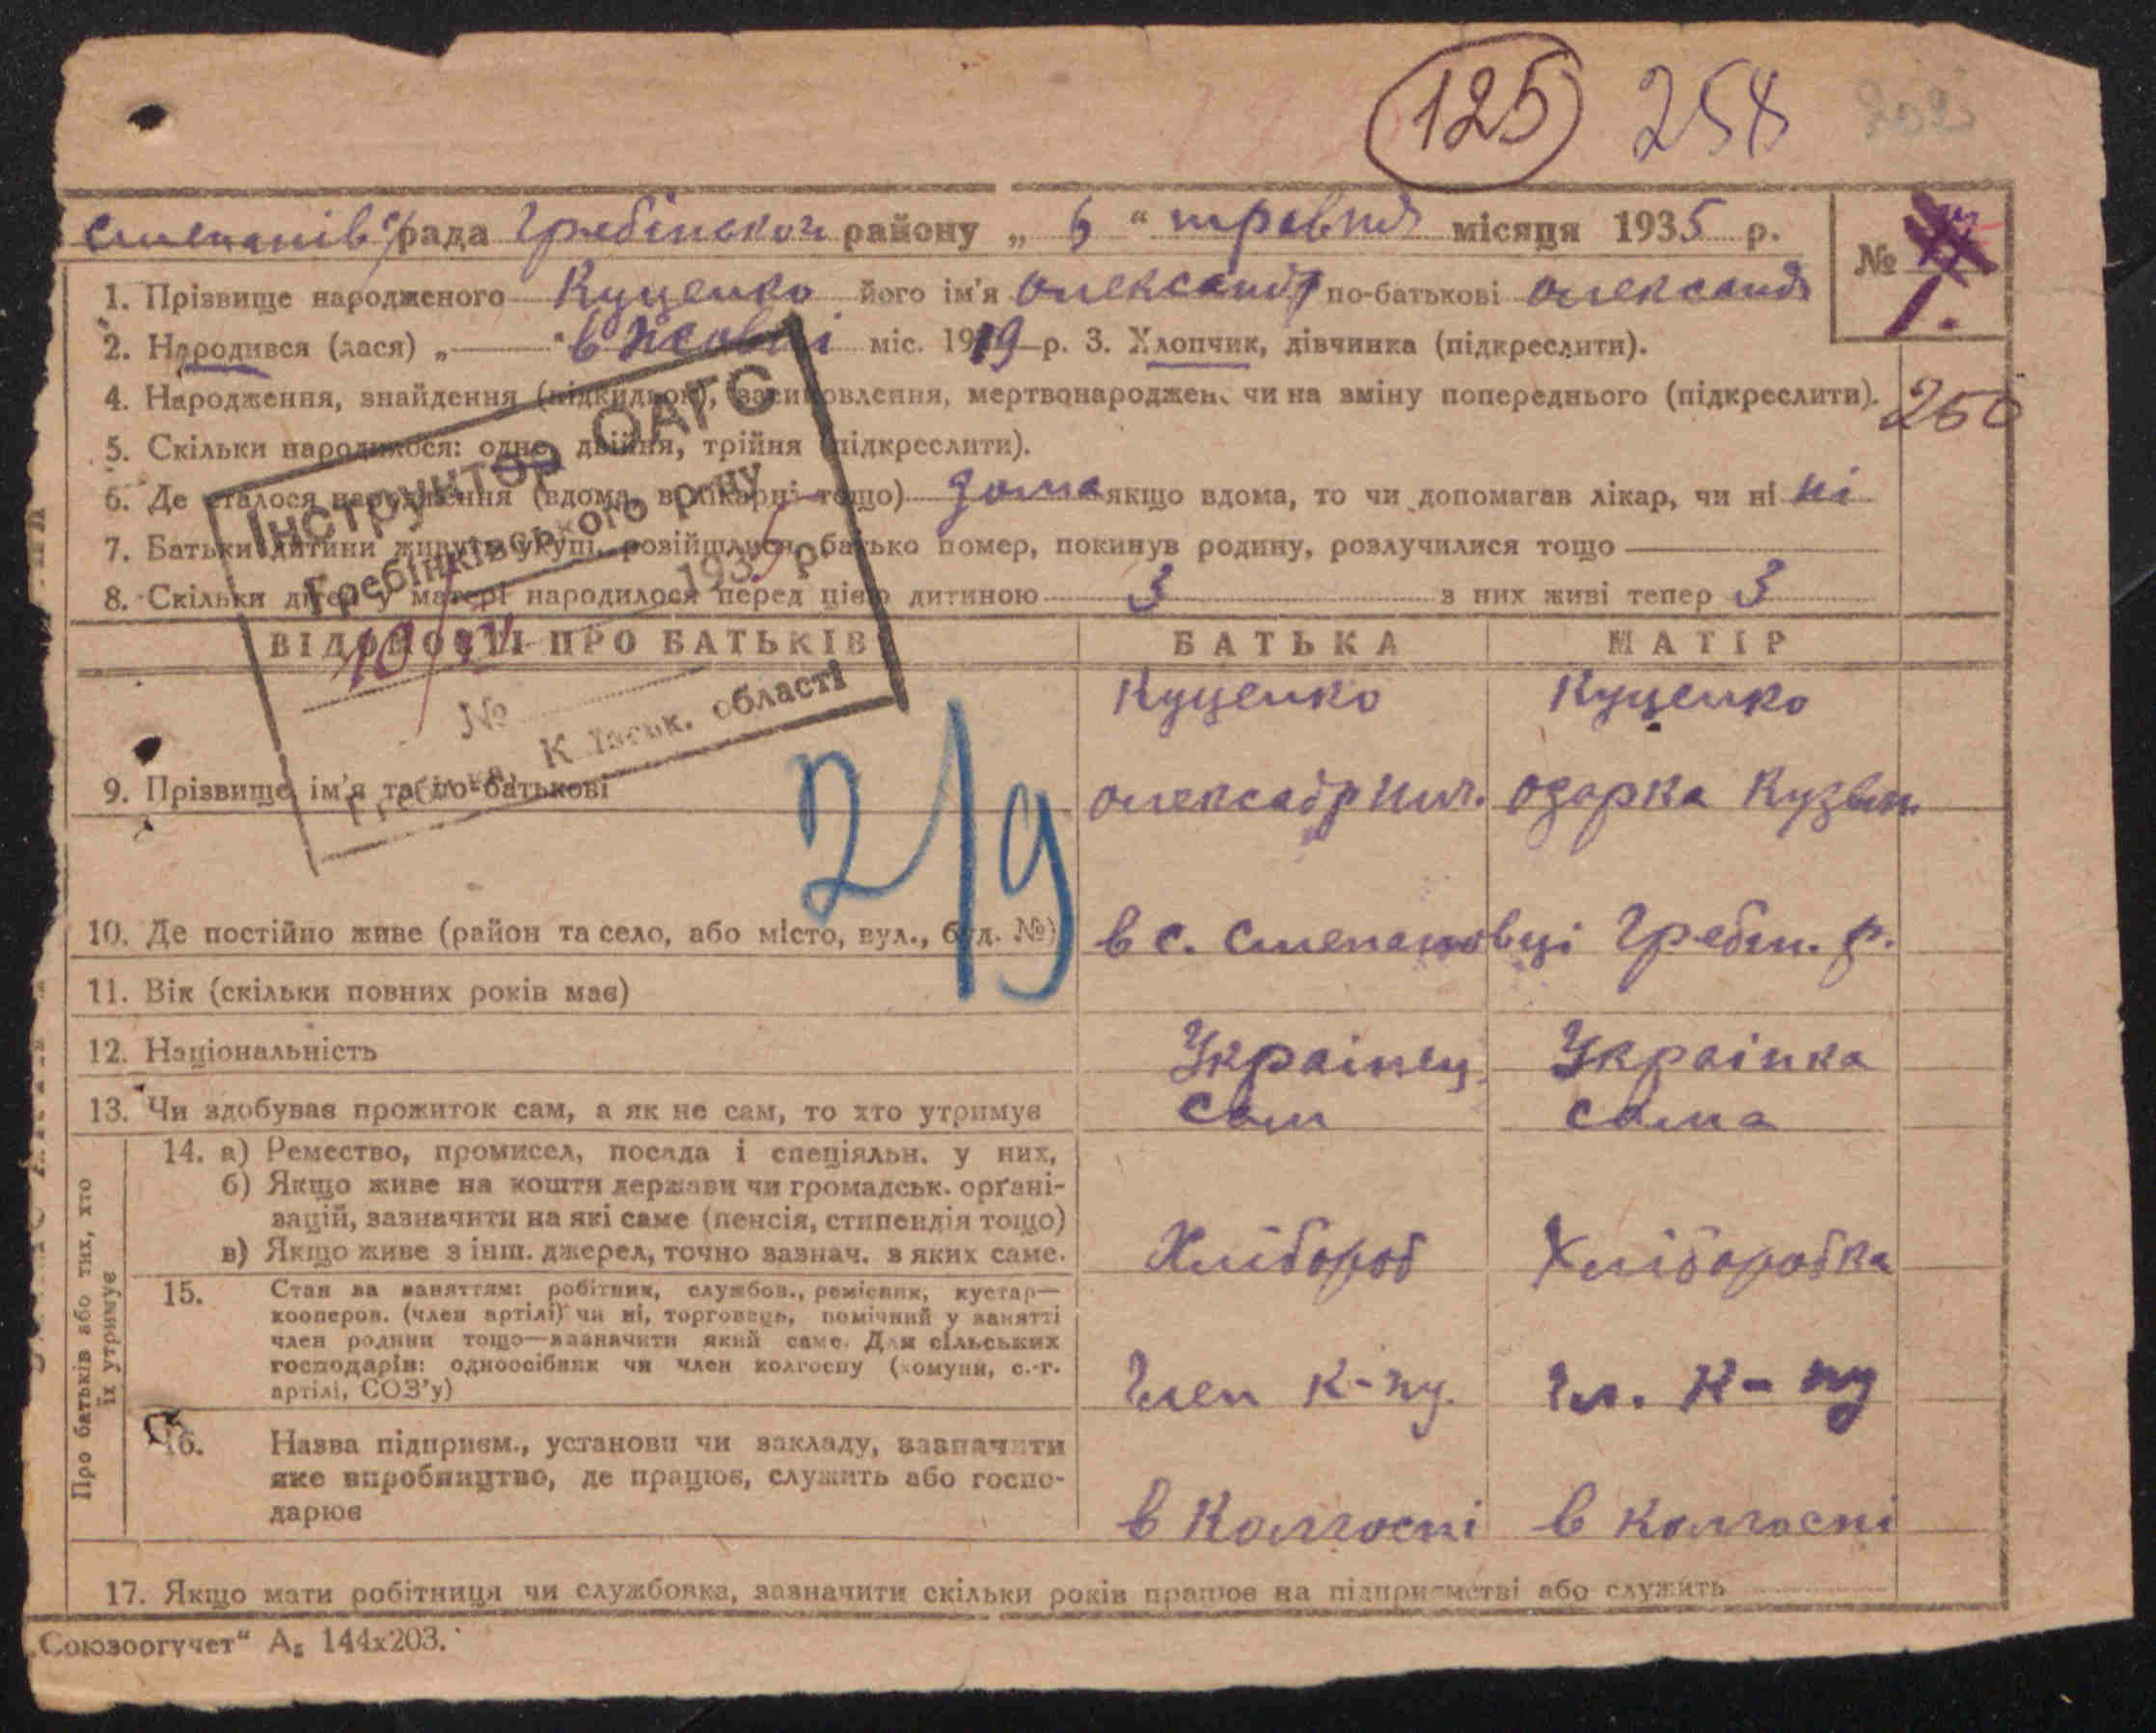 125 258
Степанів с/рада Гребінської району „ 6 “ травня місяця 1935 р. № 1.
1. Прізвище народженого Куценко його ім'я Олександр по-батькові Олександ
2. Народився (лася) „ — “ в жовтні міс. 1919 р. 3. Хлопчик, дівчинка (підкреслити).
4. Народження, знайдення (підкидьок), засиновлення, мертвонароджен. чи на зміну попереднього (підкреслити). 250
5. Скільки народилося: одне, двійня, трійня (підкреслити).
6. Де сталося народження (вдома, в лікарні тощо) дома якщо вдома, то чи допомагав лікар, чи ні ні
7. Батьки дитини живуть укупі, розійшлися, батько помер, покинув родину, розлучилися тощо
8. Скільки дітей у матері народилося перед цією дитиною 3 з них живі тепер 3
Інструктор ОАГС
Гребінківського р-ну
1935 р.
№
Гребінка, Київськ. області
ВІДОМОСТІ ПРО БАТЬКІВ БАТЬКА МАТІР
Куценко Куценко
9. Прізвище, ім'я та по-батькові Олексадр Олександр Одарка Кузьм.
219
10. Де постійно живе (район та село, або місто, вул., буд. №) в с. Степановці Гребін. р.
11. Вік (скільки повних років має)
12. Національність Украінец Украінка
13. Чи здобуває прожиток сам, а як не сам, то хто утримує сам сама
Про батьків або тих, хто їх утримує
14. а) Ремество, промисел, посада і спеціяльн. у них,
б) Якщо живе на кошти держави чи громадськ. орґані-
зацій, зазначити на які саме (пенсія, стипендія тощо)
в) Якщо живе з інш. джерел, точно зазнач. з яких саме. Хлібороб Хліборобка
15. Стан за заняттям: робітник, службов., ремісник, кустар—
кооперов. (член артілі) чи ні, торговець, помічний у занятті
член родини тощо—зазначити який саме. Для сільських
господарів: одноосібник чи член колгоспу (комуни, с.-г.
артілі, СОЗ'у) Член к-пу. Чл. к-пу
16. Назва підприєм., установи чи закладу, зазначити
яке виробництво, де працює, служить або госпо-
дарює в Колгоспі в колгоспі
17. Якщо мати робітниця чи службовка, зазначити скільки років працює на підприємстві або служить
„Союзоргучет“ А₅ 144х203.